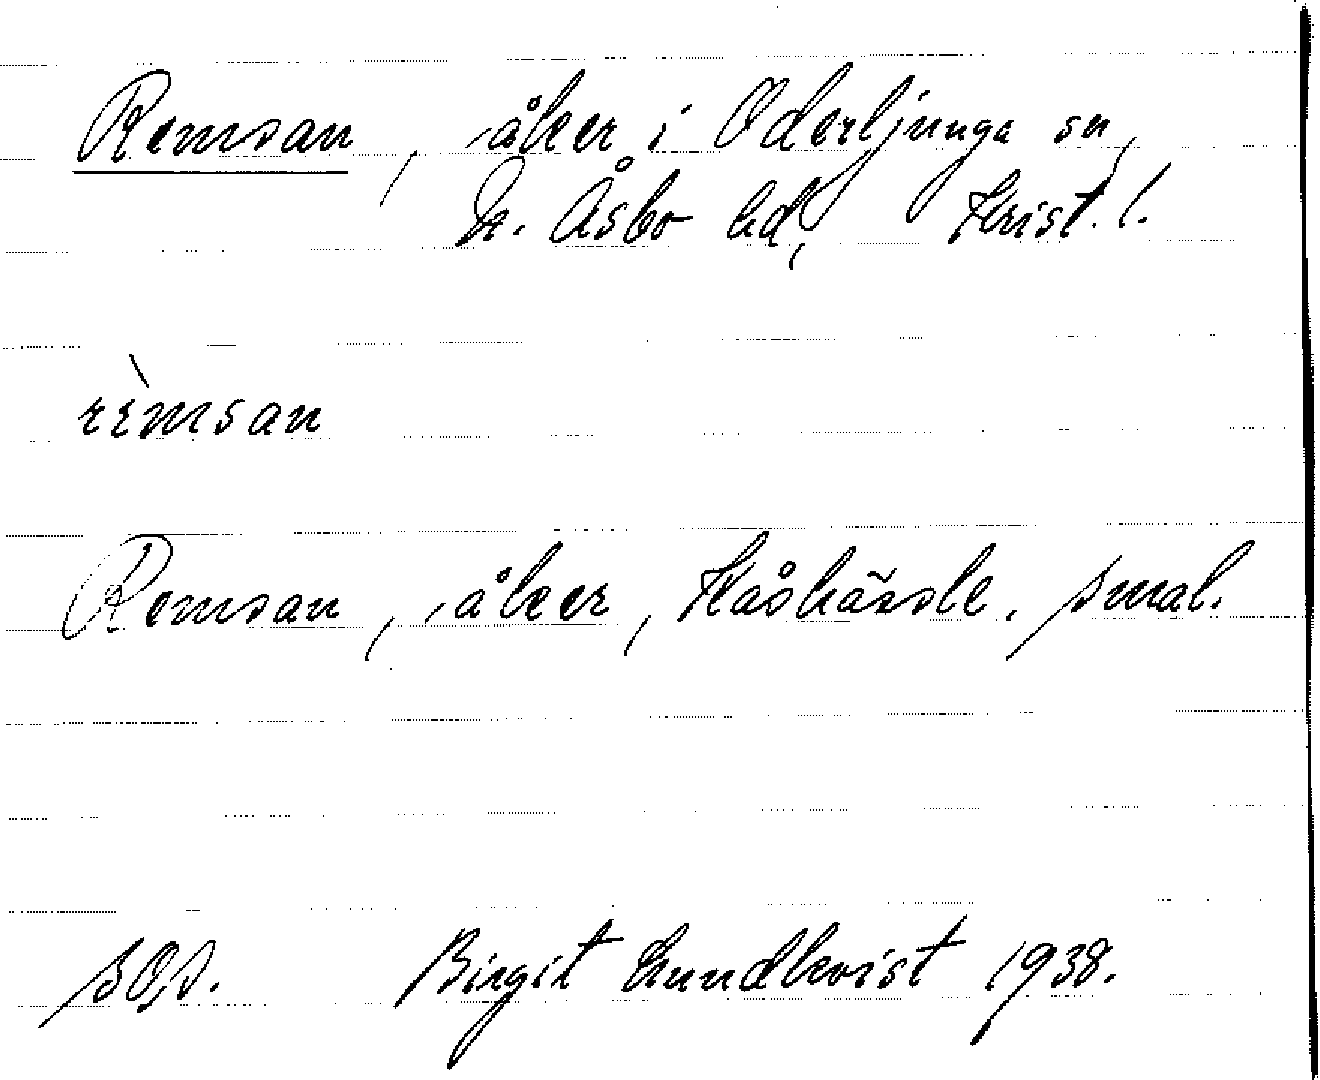 Remsan, åker i Oderljunga sn,
N. Åsbo hd, Krist. l.
rèmsan
Remsan, åker, Kåshässle. smal.
SOS. Birgit Lundkvist 1938.